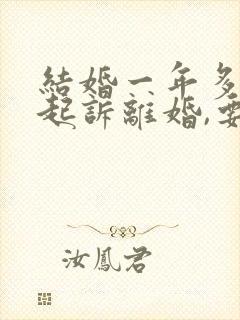 結婚一年多
起訴離婚,要
汝鳳君